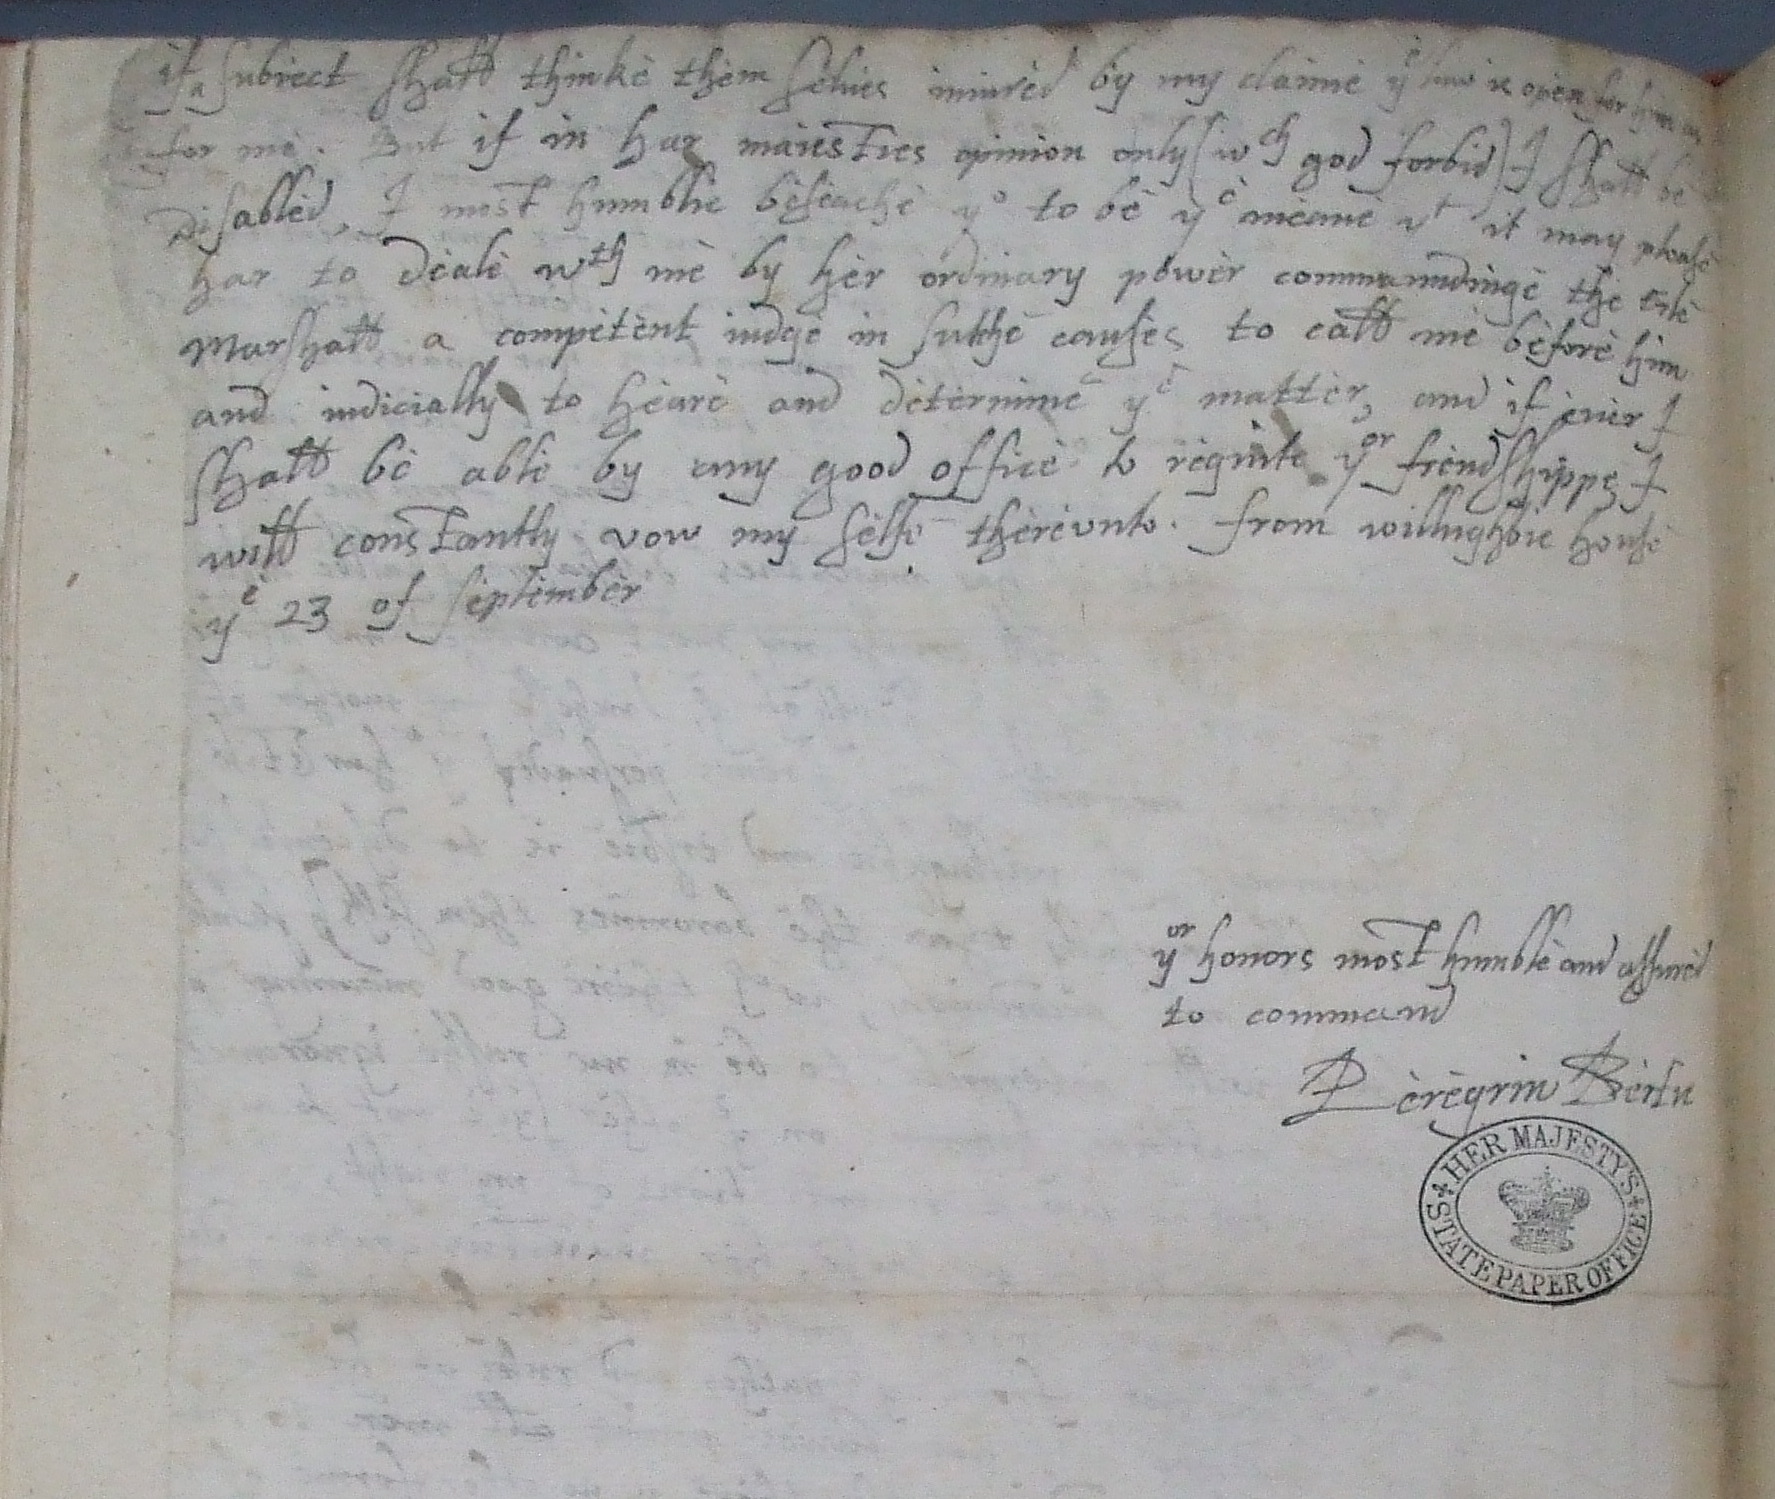 if a subiect shall thinke them selues iniured by my claime ye law is open for him as
for me. But if in har maiesties opinion only (wch god forbid) I shall be
disabled, I most humblie beseache yo to be ye meane yt it may please
har to deale wth me by her ordinary power commaundinge the erle
Marshall a competent iudge in sutche causes to call me before him
and iudicially to heare and determine ye matter, and if euer I
shall be able by any good office to requite yor frendshipps I
will constantly vow my selfe therevnto. from willughbie house
ye 23 of september
yor honors most humble and assured
to command
Peregrin Bertu
HER MAJESTY'S STATE PAPER OFFICE